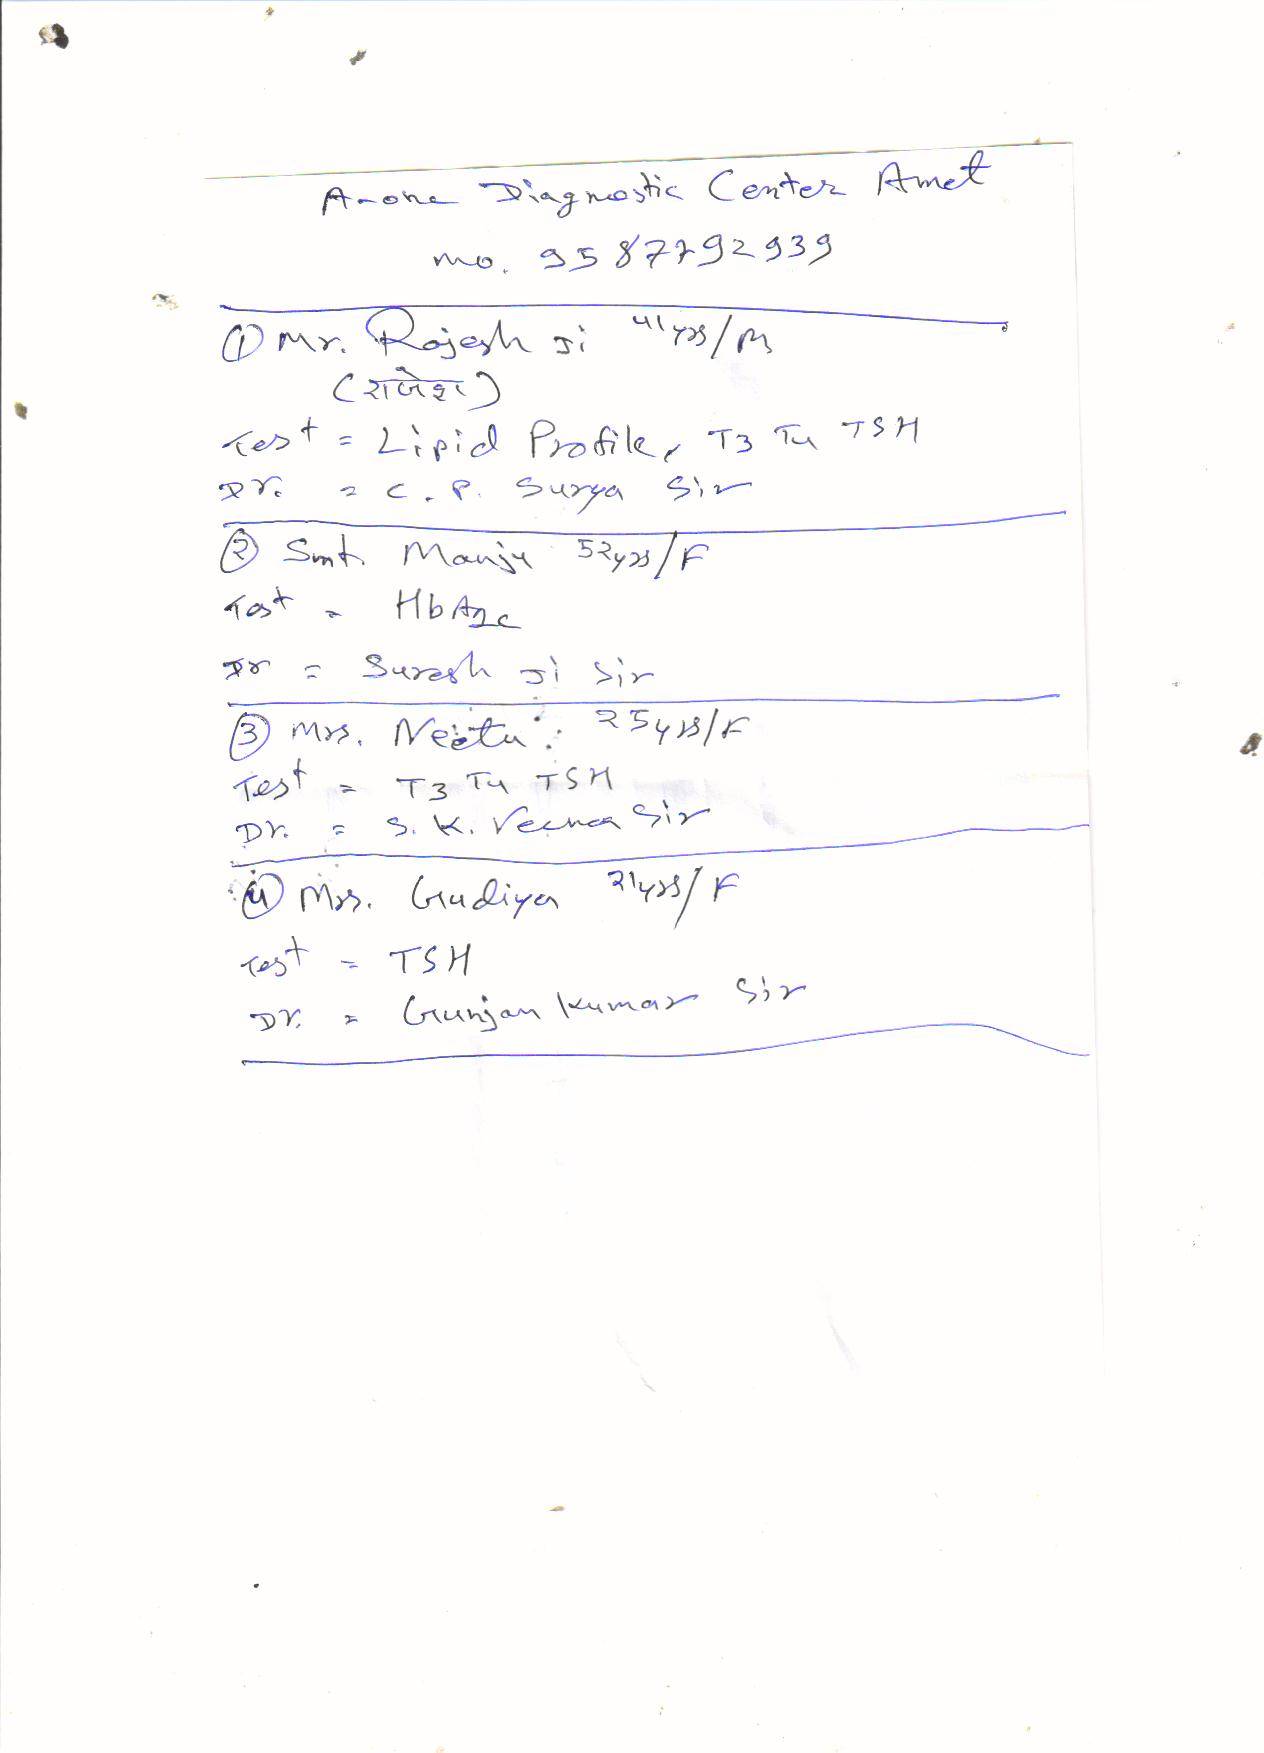 A-one Diagnostic Center Amet
mo. 9587792939
① Mr. Rajesh Ji 41yrs/M
(राजेश)
Test = Lipid Profile, T3 T4 TSH
Dr. = C. P. Surya Sir
② Smt. Manju 52yrs/F
Test = HbA1c
Dr = Suresh Ji Sir
③ Mrs. Neetu 25yrs/F
Test = T3 T4 TSH
Dr. = S. K. Verma Sir
④ Mrs. Gudiya 21yrs/F
Test = TSH
Dr. = Gunjan Kumar Sir